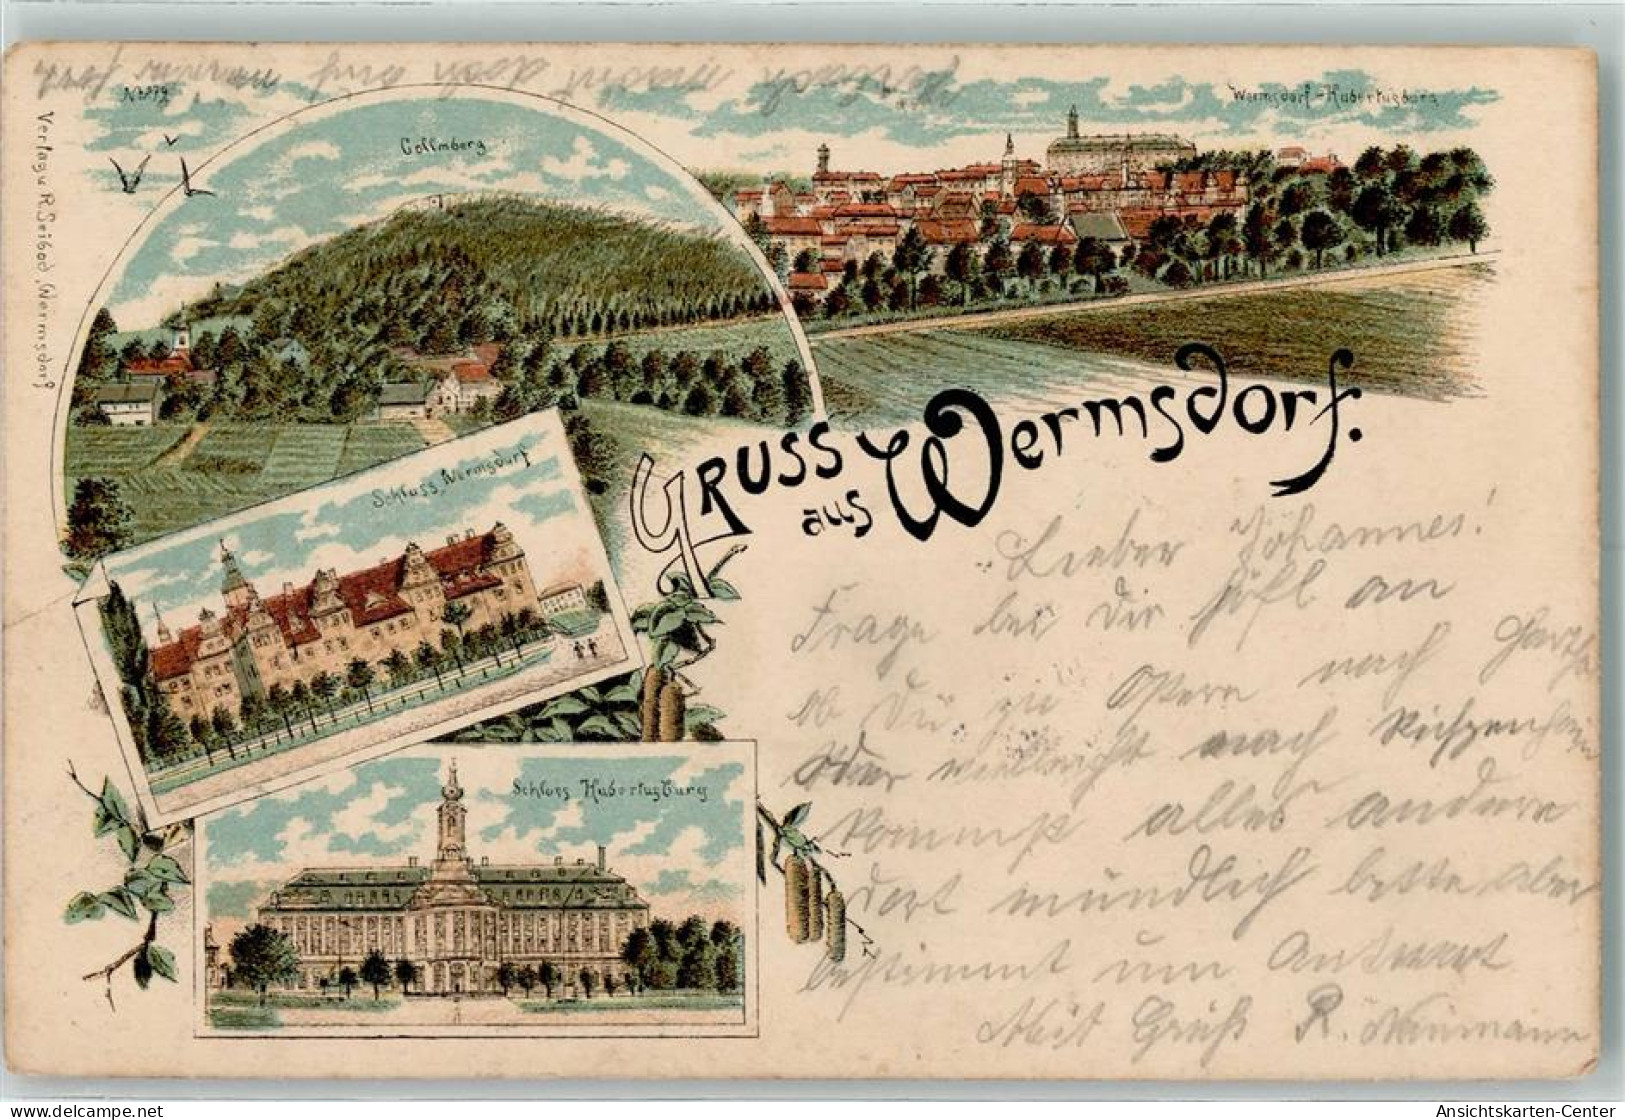 No 279
Collmberg
Wermsdorf-Hubertusburg
Verlag v. R. Seibod, Wermsdorf
Schloss Wermsdorf
Schloss Hubertusburg
GRUSS
aus Wermsdorf.
Lieber Johannes!
Frage bei Dir höfl an
ob Du zu Ostern nach
oder vielleicht nach
kommst alles andere
dort mündlich bitte aber
bestimmt um Antwort
Mit Gruß R. Naumann
doch auf
delcampe.net
Ansichtskarten-Center